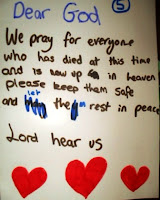 Dear God
5
We pray for everyone
who has died at this time
and is now up in heaven
please keep them safe
and let them rest in peace
Lord hear us